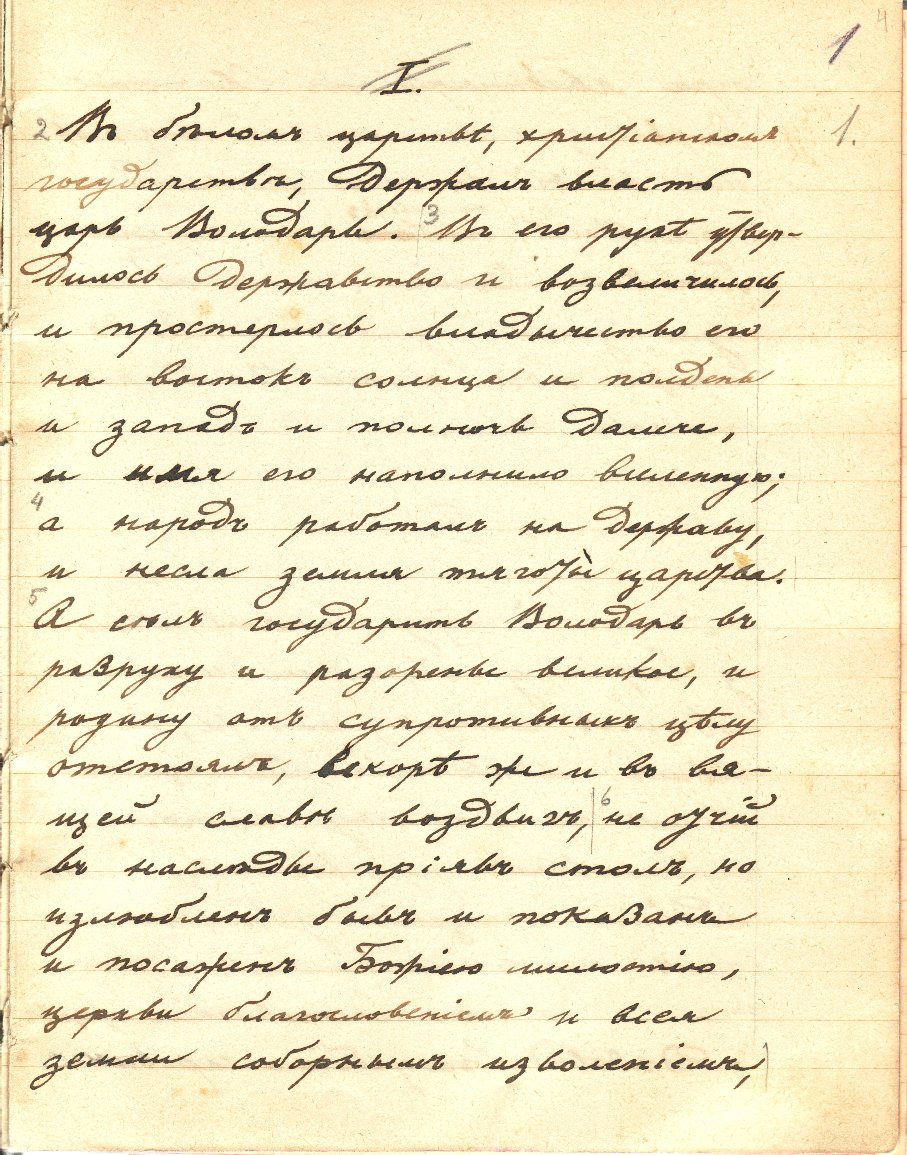 4
1
I.
1.
2 Въ бѣломъ царствѣ, христіанскомъ
государствѣ, держалъ власть
царь Володарь. 3 Въ его рукѣ утвер-
дилось державство и возвеличилось,
и простерлось владычество его
на востокъ солнца и полдень
и западъ и полночь далече,
и имя его наполнило вселенную;
4 а народъ работалъ на державу,
и несла земля тяготы царства.
5 А сѣлъ государить Володарь въ
разруху и разоренье великое, и
родину отъ супротивныхъ цѣлу
отстоялъ, вскорѣ же и въ вя-
щей славѣ воздвигъ, 6 не отчій
въ наслѣдье пріявъ столъ, но
излюбленъ бывъ и показанъ
и посаженъ Божіею милостію,
церкви благословеніемъ и всея
земли соборнымъ изволеніемъ,